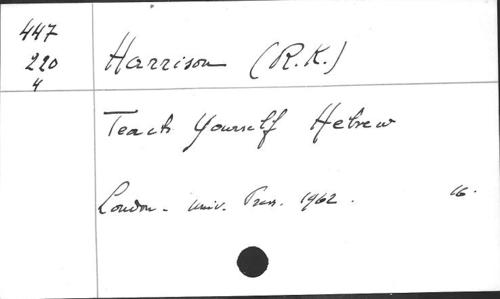 447
220
4
Harrison (R.K.)
Teach Yourself Hebrew
London - Univ. Press. 1962. 16.